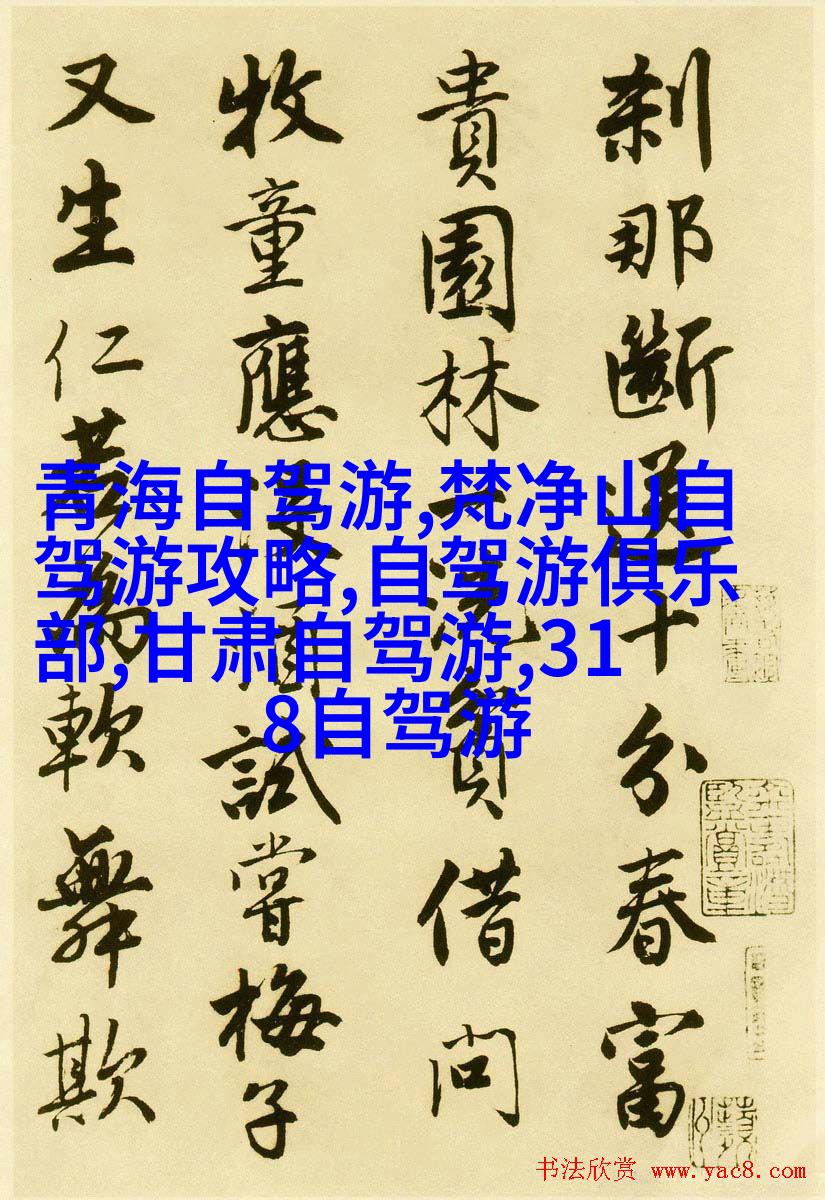 刹那斷送十分春富
貴園林一洗貧借問
牧童應沒酒試嘗梅子
又生仁若為軟舞欺
青海自驾游,梵净山自
驾游攻略,自驾游俱乐
部,甘肃自驾游,31
8自驾游
书法欣赏 www.yac8.com